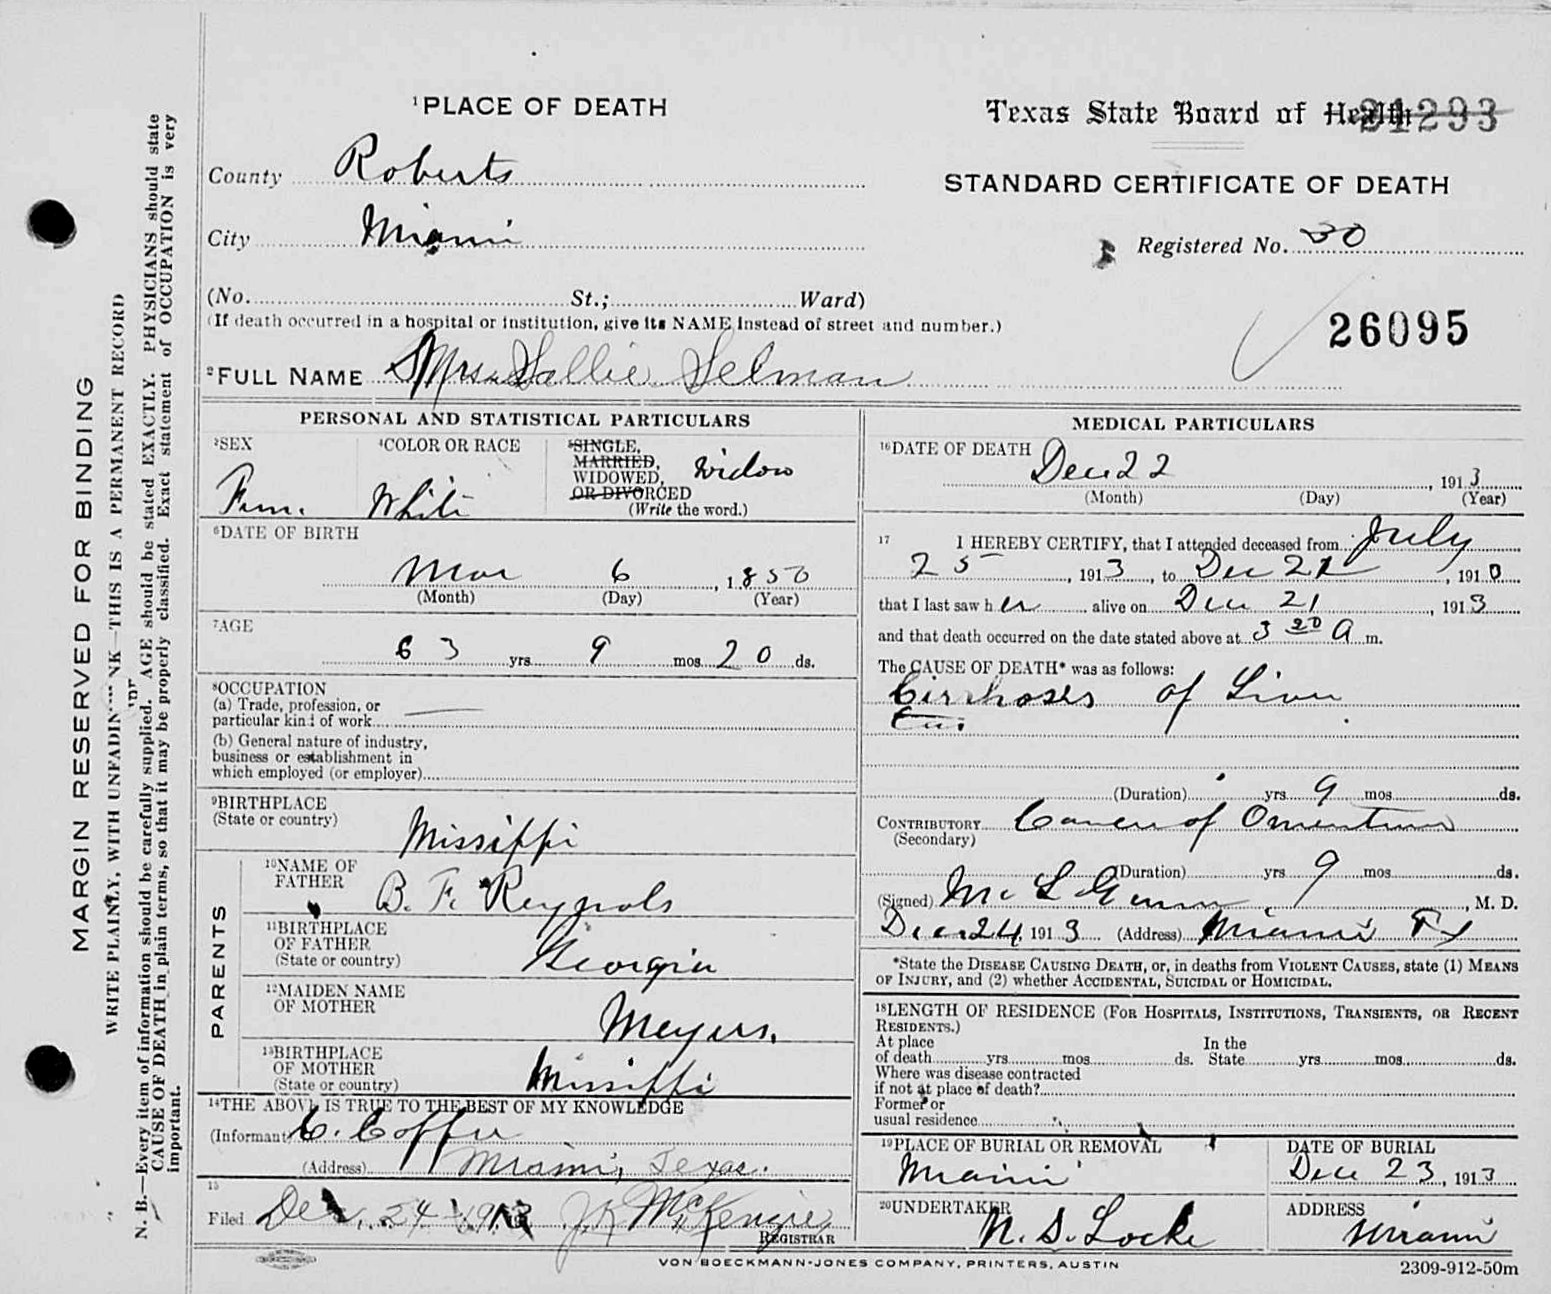 MARGIN RESERVED FOR BINDING
WRITE PLAINLY, WITH UNFADING INK—THIS IS A PERMANENT RECORD
N. B.—Every item of information should be carefully supplied. AGE should be stated EXACTLY. PHYSICIANS should state
CAUSE OF DEATH in plain terms, so that it may be properly classified. Exact statement of OCCUPATION is very
important.
1 PLACE OF DEATH
County Roberts
City Miami
(No. St.; Ward)
(If death occurred in a hospital or institution, give its NAME instead of street and number.)
2 FULL NAME Mrs. Sallie Selman
Texas State Board of Health 21293
STANDARD CERTIFICATE OF DEATH
Registered No. 30
26095
PERSONAL AND STATISTICAL PARTICULARS
3 SEX
Fem.
4 COLOR OR RACE
White
5 SINGLE,
MARRIED,
WIDOWED,
OR DIVORCED
Widow
(Write the word.)
6 DATE OF BIRTH
Mar 6, 1850
(Month) (Day) (Year)
7 AGE
63 yrs 9 mos 20 ds.
8 OCCUPATION
(a) Trade, profession, or
particular kind of work
(b) General nature of industry,
business or establishment in
which employed (or employer)
9 BIRTHPLACE
(State or country)
Missiffi
PARENTS
10 NAME OF
FATHER B. F. Reynols
11 BIRTHPLACE
OF FATHER
(State or country) Georgia
12 MAIDEN NAME
OF MOTHER
Meyers.
13 BIRTHPLACE
OF MOTHER
(State or country) Missiffi
14 THE ABOVE IS TRUE TO THE BEST OF MY KNOWLEDGE
(Informant) C. Coffee
(Address) Miami, Texas.
15
Filed Dec. 24 1913 J K McKenzie
REGISTRAR
MEDICAL PARTICULARS
16 DATE OF DEATH
Dec 22, 1913
(Month) (Day) (Year)
17 I HEREBY CERTIFY, that I attended deceased from July
25, 1913, to Dec 21, 1910
that I last saw her alive on Dec 21, 1913
and that death occurred on the date stated above at 3 20 A m.
The CAUSE OF DEATH* was as follows:
Cirrhoses of Liver
(Duration) yrs 9 mos ds.
CONTRIBUTORY Cancer of Omentum
(Secondary)
(Duration) yrs 9 mos ds.
(Signed) M. L. Gunn, M. D.
Dec 24 1913 (Address) Miami Tx
*State the DISEASE CAUSING DEATH, or, in deaths from VIOLENT CAUSES, state (1) MEANS
OF INJURY, and (2) whether ACCIDENTAL, SUICIDAL or HOMICIDAL.
18 LENGTH OF RESIDENCE (FOR HOSPITALS, INSTITUTIONS, TRANSIENTS, OR RECENT
RESIDENTS.)
At place In the
of death yrs mos ds. State yrs mos ds.
Where was disease contracted
if not at place of death?
Former or
usual residence
19 PLACE OF BURIAL OR REMOVAL
Miami
DATE OF BURIAL
Dec 23, 1913
20 UNDERTAKER
N. S. Locke
ADDRESS
Miami
VON BOECKMANN-JONES COMPANY, PRINTERS, AUSTIN
2309-912-50m